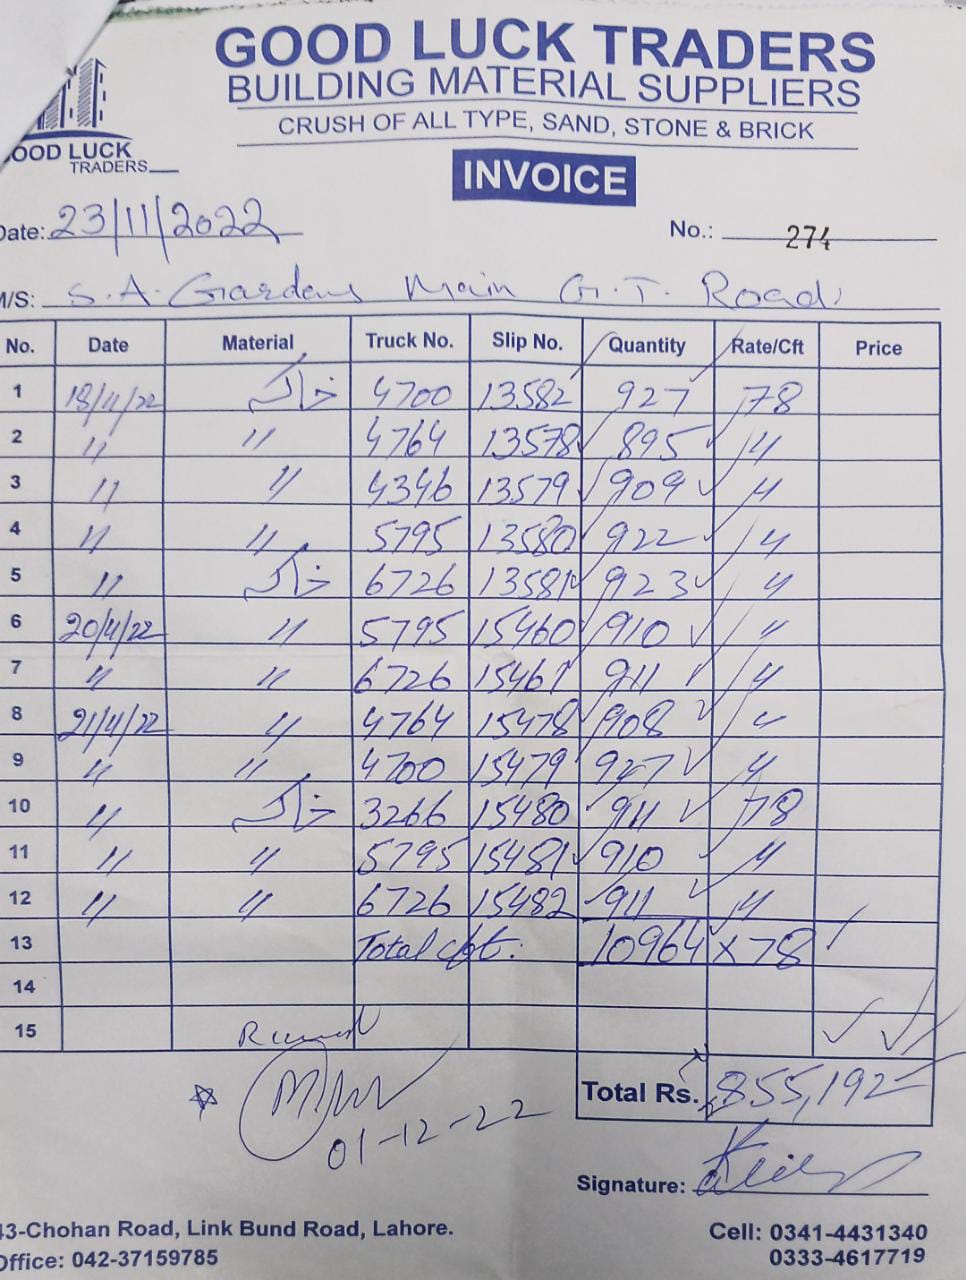 GOOD LUCK TRADERS
BUILDING MATERIAL SUPPLIERS
CRUSH OF ALL TYPE, SAND, STONE & BRICK
OOD LUCK
TRADERS
INVOICE
Date: 23/11/2022
No.: 274
M/S: S.A. Gardens Main G.T. Road
No. Date Material Truck No. Slip No. Quantity Rate/Cft Price
1 18/11/22 خاکہ 4700 13582 927 78
2 " " 4764 13578 895 "
3 " " 4346 13579 909 "
4 " " 5795 13580 922 "
5 " خاکہ 6726 13581 923 "
6 20/11/22 " 5795 15460 910 "
7 " " 6726 15461 911 "
8 21/11/22 " 4764 15478 908 "
9 " " 4700 15479 927 "
10 " خاکہ 3266 15480 911 78
11 " " 5795 15481 910 "
12 " " 6726 15482 911 "
13 Total cft: 10964 x 78
14
15
Total Rs. 855,192
01-12-22
Signature:
43-Chohan Road, Link Bund Road, Lahore.
Office: 042-37159785
Cell: 0341-4431340
0333-4617719